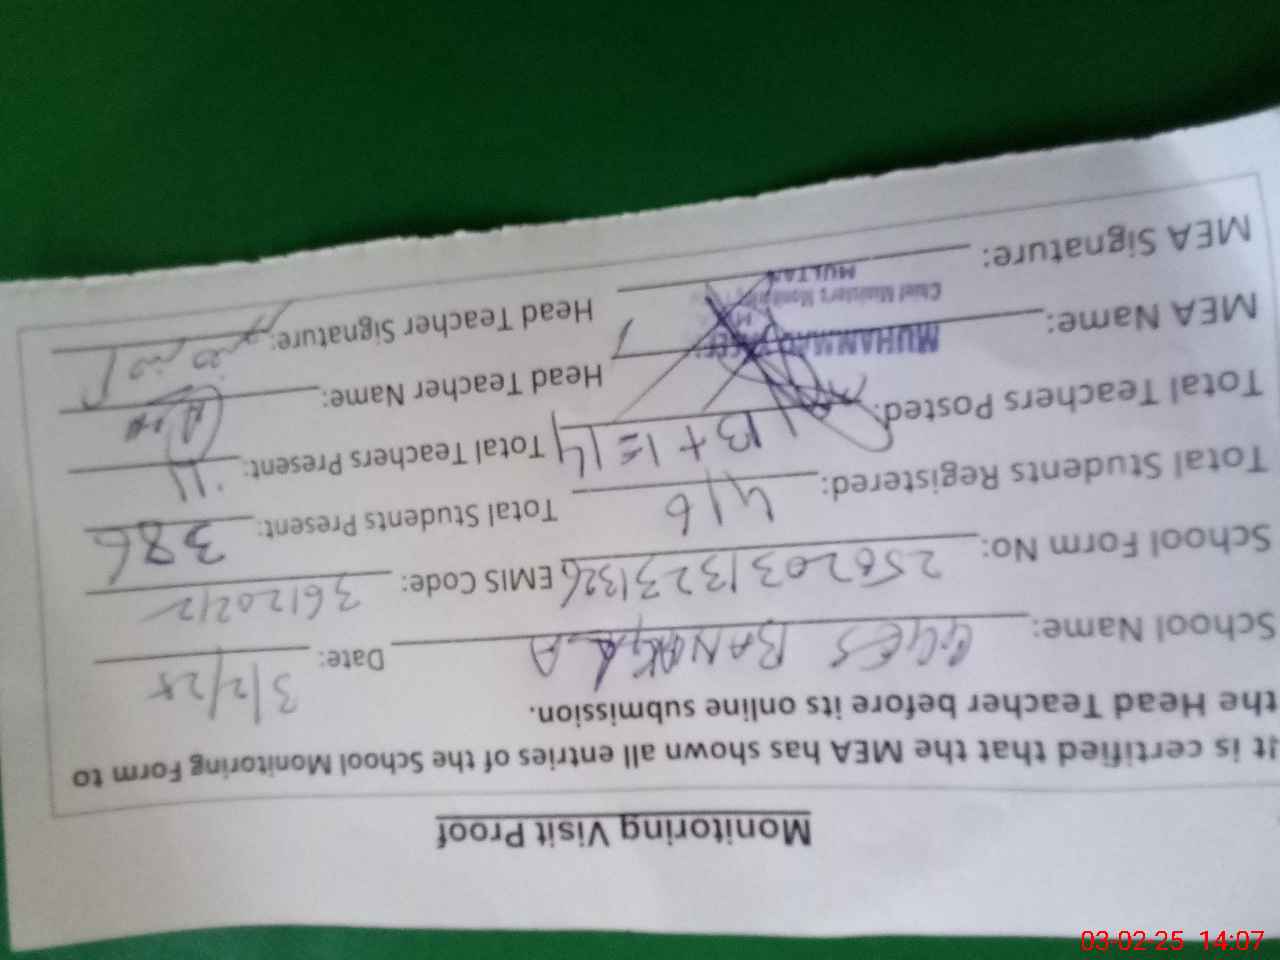 Monitoring Visit Proof
It is certified that the MEA has shown all entries of the School Monitoring Form to
the Head Teacher before its online submission.
School Name: GGES BANGALA Date: 3/2/25
School Form No: EMIS Code:
Total Students Registered: 416 Total Students Present: 386
Total Teachers Posted: 13 + 1 = 14 Total Teachers Present: 11
MEA Name: MUHAMMAD Head Teacher Name:
Chief Ministers Monitoring
MULTAN
MEA Signature: Head Teacher Signature:
03-02-25 14:07